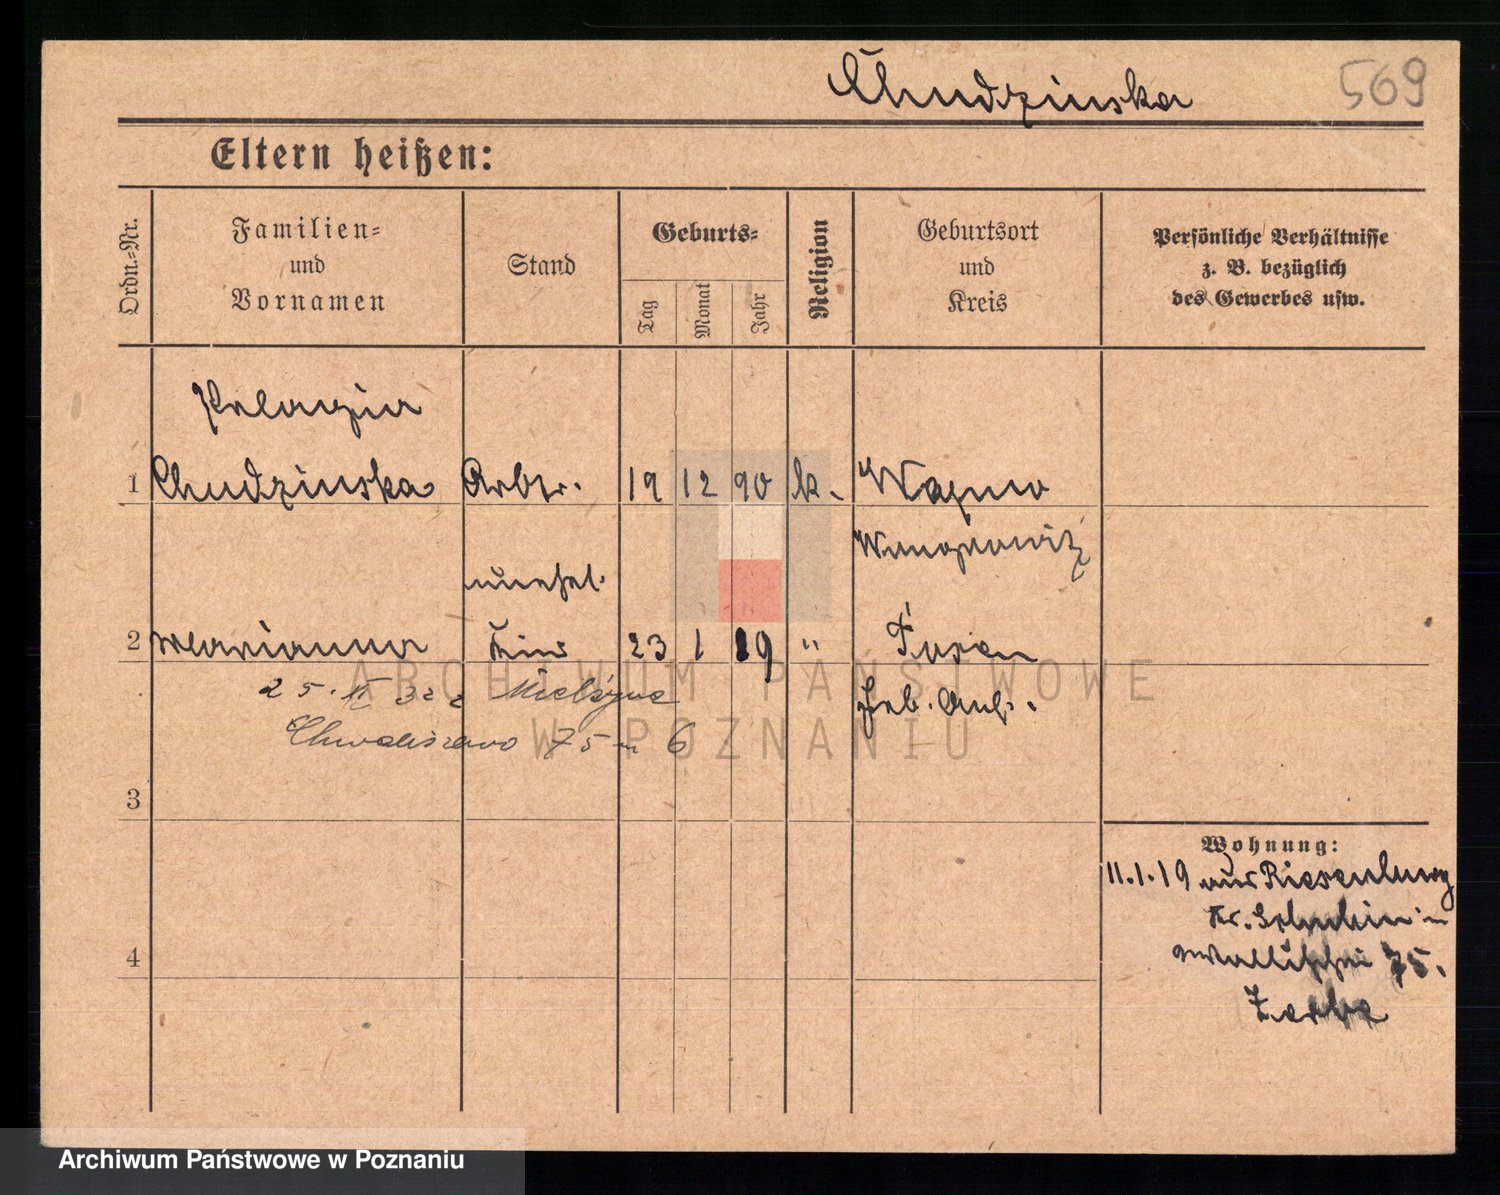 Chudzinska 569
Eltern heißen:
Ordn.-Nr.
Familien-
und
Vornamen
Stand
Geburts-
Tag
Monat
Jahr
Religion
Geburtsort
und
Kreis
Persönliche Verhältnisse
z. B. bezüglich
des Gewerbes usw.
Pelagia
1 Chudzinska Arbtr. 19 12 90 k. Wapno
Wongrowitz
unehel.
2 Marianna Kind 23 1 19 " Posen
Geb. Anst.
25. 32 z Mielżyna
Chwaliszewo 75 m 6
3
4
Wohnung:
11.1.19 aus Riesenburg
Kr. Schubin in
Wallischei 75.
ARCHIWUM PAŃSTWOWE
W POZNANIU
Archiwum Państwowe w Poznaniu